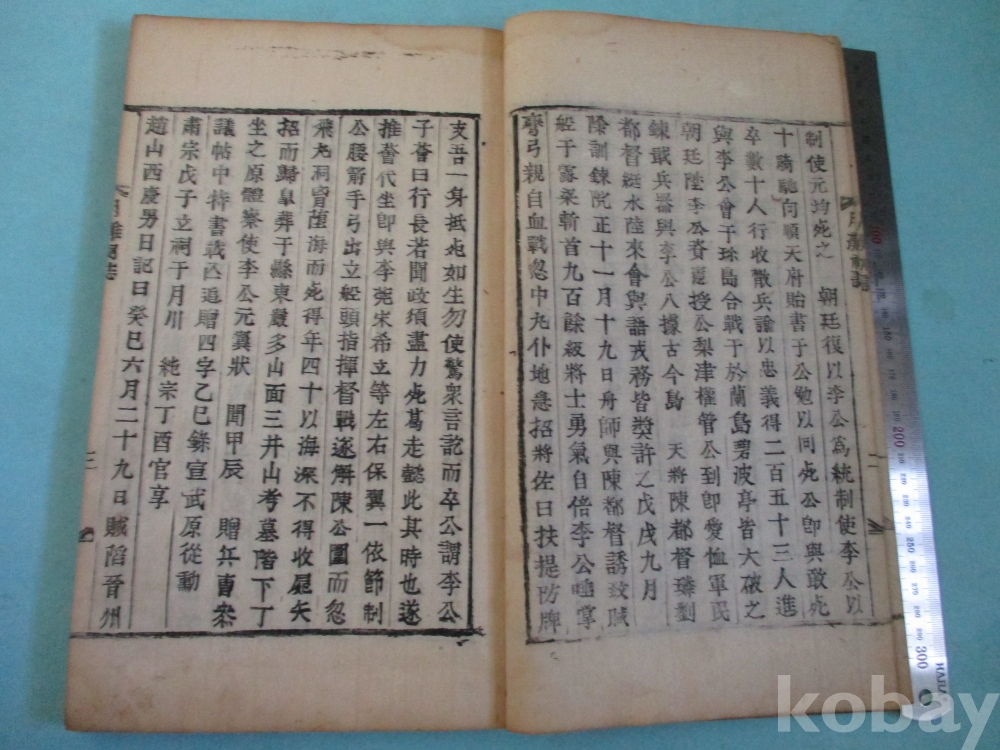 制使元均死之 朝廷復以李公爲統制使李公以
十騎馳向順天府貽書于公勉以同死公卽與敢死
卒數十人行收散兵諭以忠義得二百五十三人進
與李公會于珍島合戰于於蘭島碧波亭皆大破之
朝廷陞李公資憲授公梨津權管公到卽愛恤軍民
鍊戢兵器與李公八據古今島 天將陳都督璘劉
都督綎水陸來會與語戎務皆奬許之戊戌九月
除訓鍊院正十一月十九日舟師與陳都督誘致賊
船于露梁斬首九百餘級將士勇氣自倍李公
弓親自血戰忽中丸仆地急招將佐曰扶提防牌
支吾一身抵死如生勿使驚衆言訖而卒公謂李公
子薈曰行長若聞政須盡力死葛走懿此其時也遂
推薈代坐卽與李莞宋希立等左右保翼一依節制
公腰箭手弓出立船頭指揮督戰遂解陳公圍而忽
飛丸洞胷墮海而死得年四十以海深不得收屍矢
招而歸臯葬于縣東叢多山面三井山考墓階下丁
坐之原體察使李公元翼狀 聞甲辰 贈兵曹參
議帖中特書載 追贈四字乙巳錄宣武原從勳
肅宗戊子立祠于月川 純宗丁酉官享
趙山西慶男日記曰癸巳六月二十九日賊䧟晉州
100
200
250
300
kobay